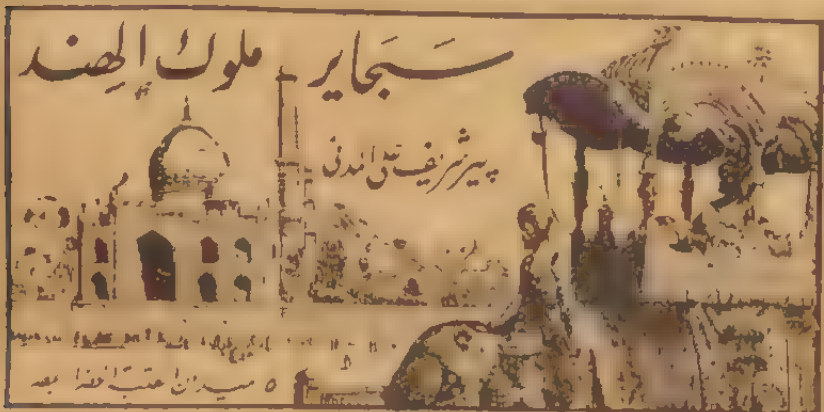 سَجَاير ملوك الهند
پير شريف على الهندى
٥ ميدان العتبة الخضرا بمصر